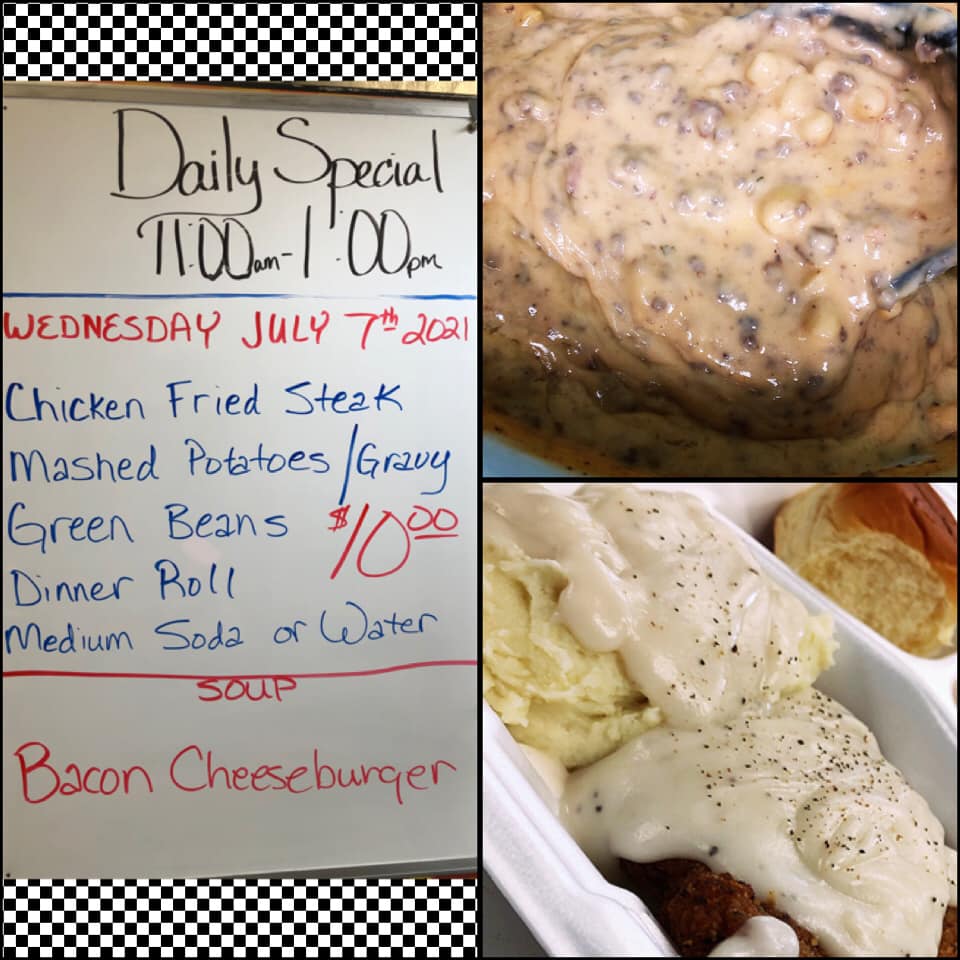 Daily Special
11:00am-1:00pm
WEDNESDAY JULY 7th 2021
Chicken Fried Steak
Mashed Potatoes/Gravy
Green Beans $10.00
Dinner Roll
Medium Soda or Water
SOUP
Bacon Cheeseburger